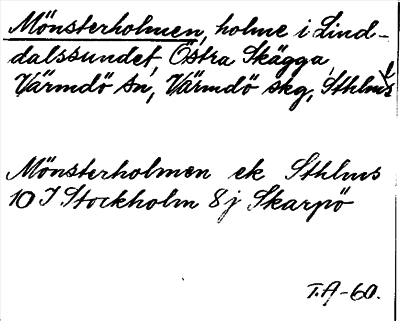 Mönsterholmen, holme i Lind-
dalssundet, Östra Skägga,
Värmdö sn, Värmdö skg, Sthlms l
Mönsterholmen ek Sthlms
10 I Stockholm 8 j Skarpö
T.A-60.